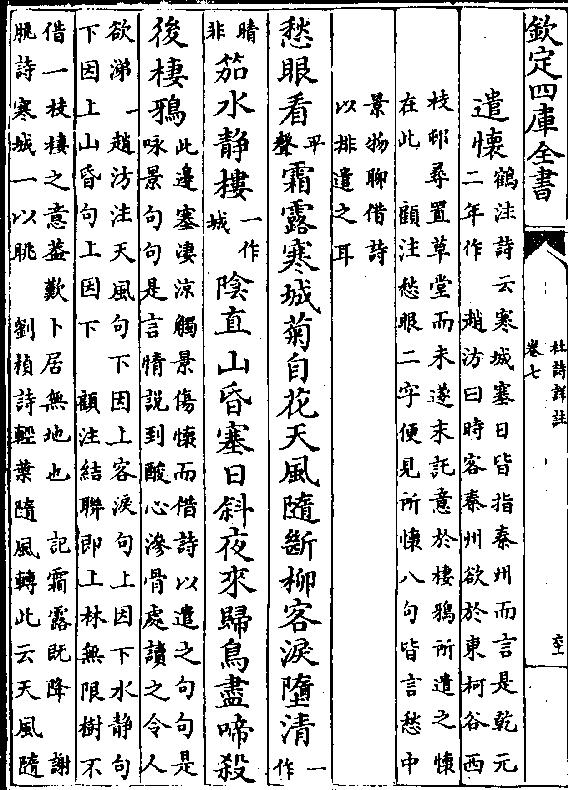 欽定四庫全書
杜詩詳註
卷七
遣懷
鶴注詩云寒城塞日皆指秦州而言是乾元
二年作 趙汸曰時客秦州欲於東柯谷西
枝邨尋置草堂而未遂末託意於棲鴉所遣之懷
在此 顧注愁眼二字便見所懷八句皆言愁中
景物聊借詩
以排遣之耳
愁眼看平聲霜露寒城菊自花天風隨斷柳客淚墮清一作
晴非笳水静樓一作城陰直山昏塞日斜夜來歸鳥盡啼殺
後棲鴉
此邊塞凄涼觸景傷懷而借詩以遣之句句是
咏景句句是言情說到酸心滲骨處讀之令人
欲涕 趙汸注天風句下因上客淚句上因下水静句
下因上山昏句上因下 顧注結聯即上林無限樹不
借一枝棲之意葢歎卜居無地也 記霜露既降 謝
朓詩寒城一以眺 劉楨詩輕葉隨風轉此云天風隨